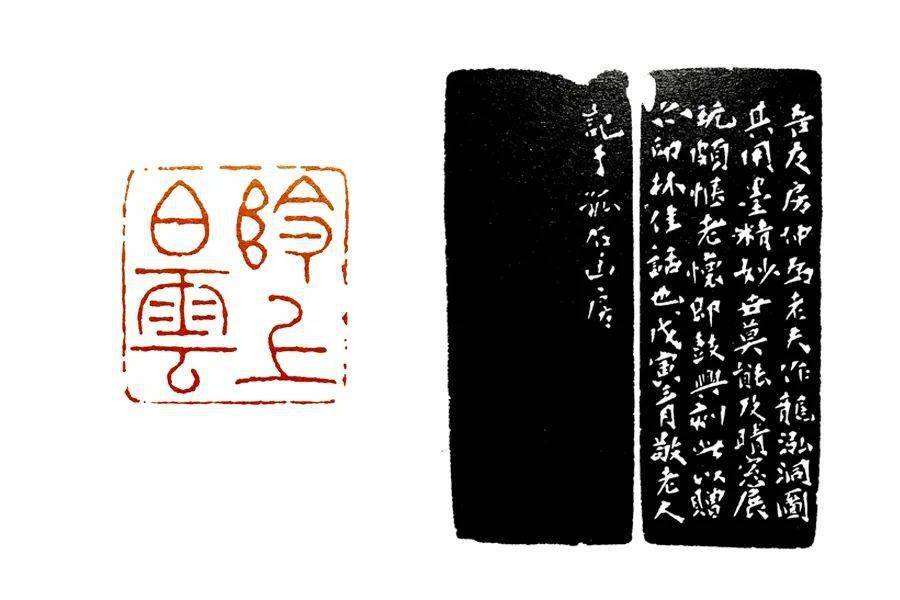 阾上
白雲
吾友房仲為老夫作龍泓洞圖
其用墨精妙世莫能及晴窓展
玩頗愜老懷即鼓興刻此以贈
亦印林佳話也戊寅三月敬老人
記于孤石山房